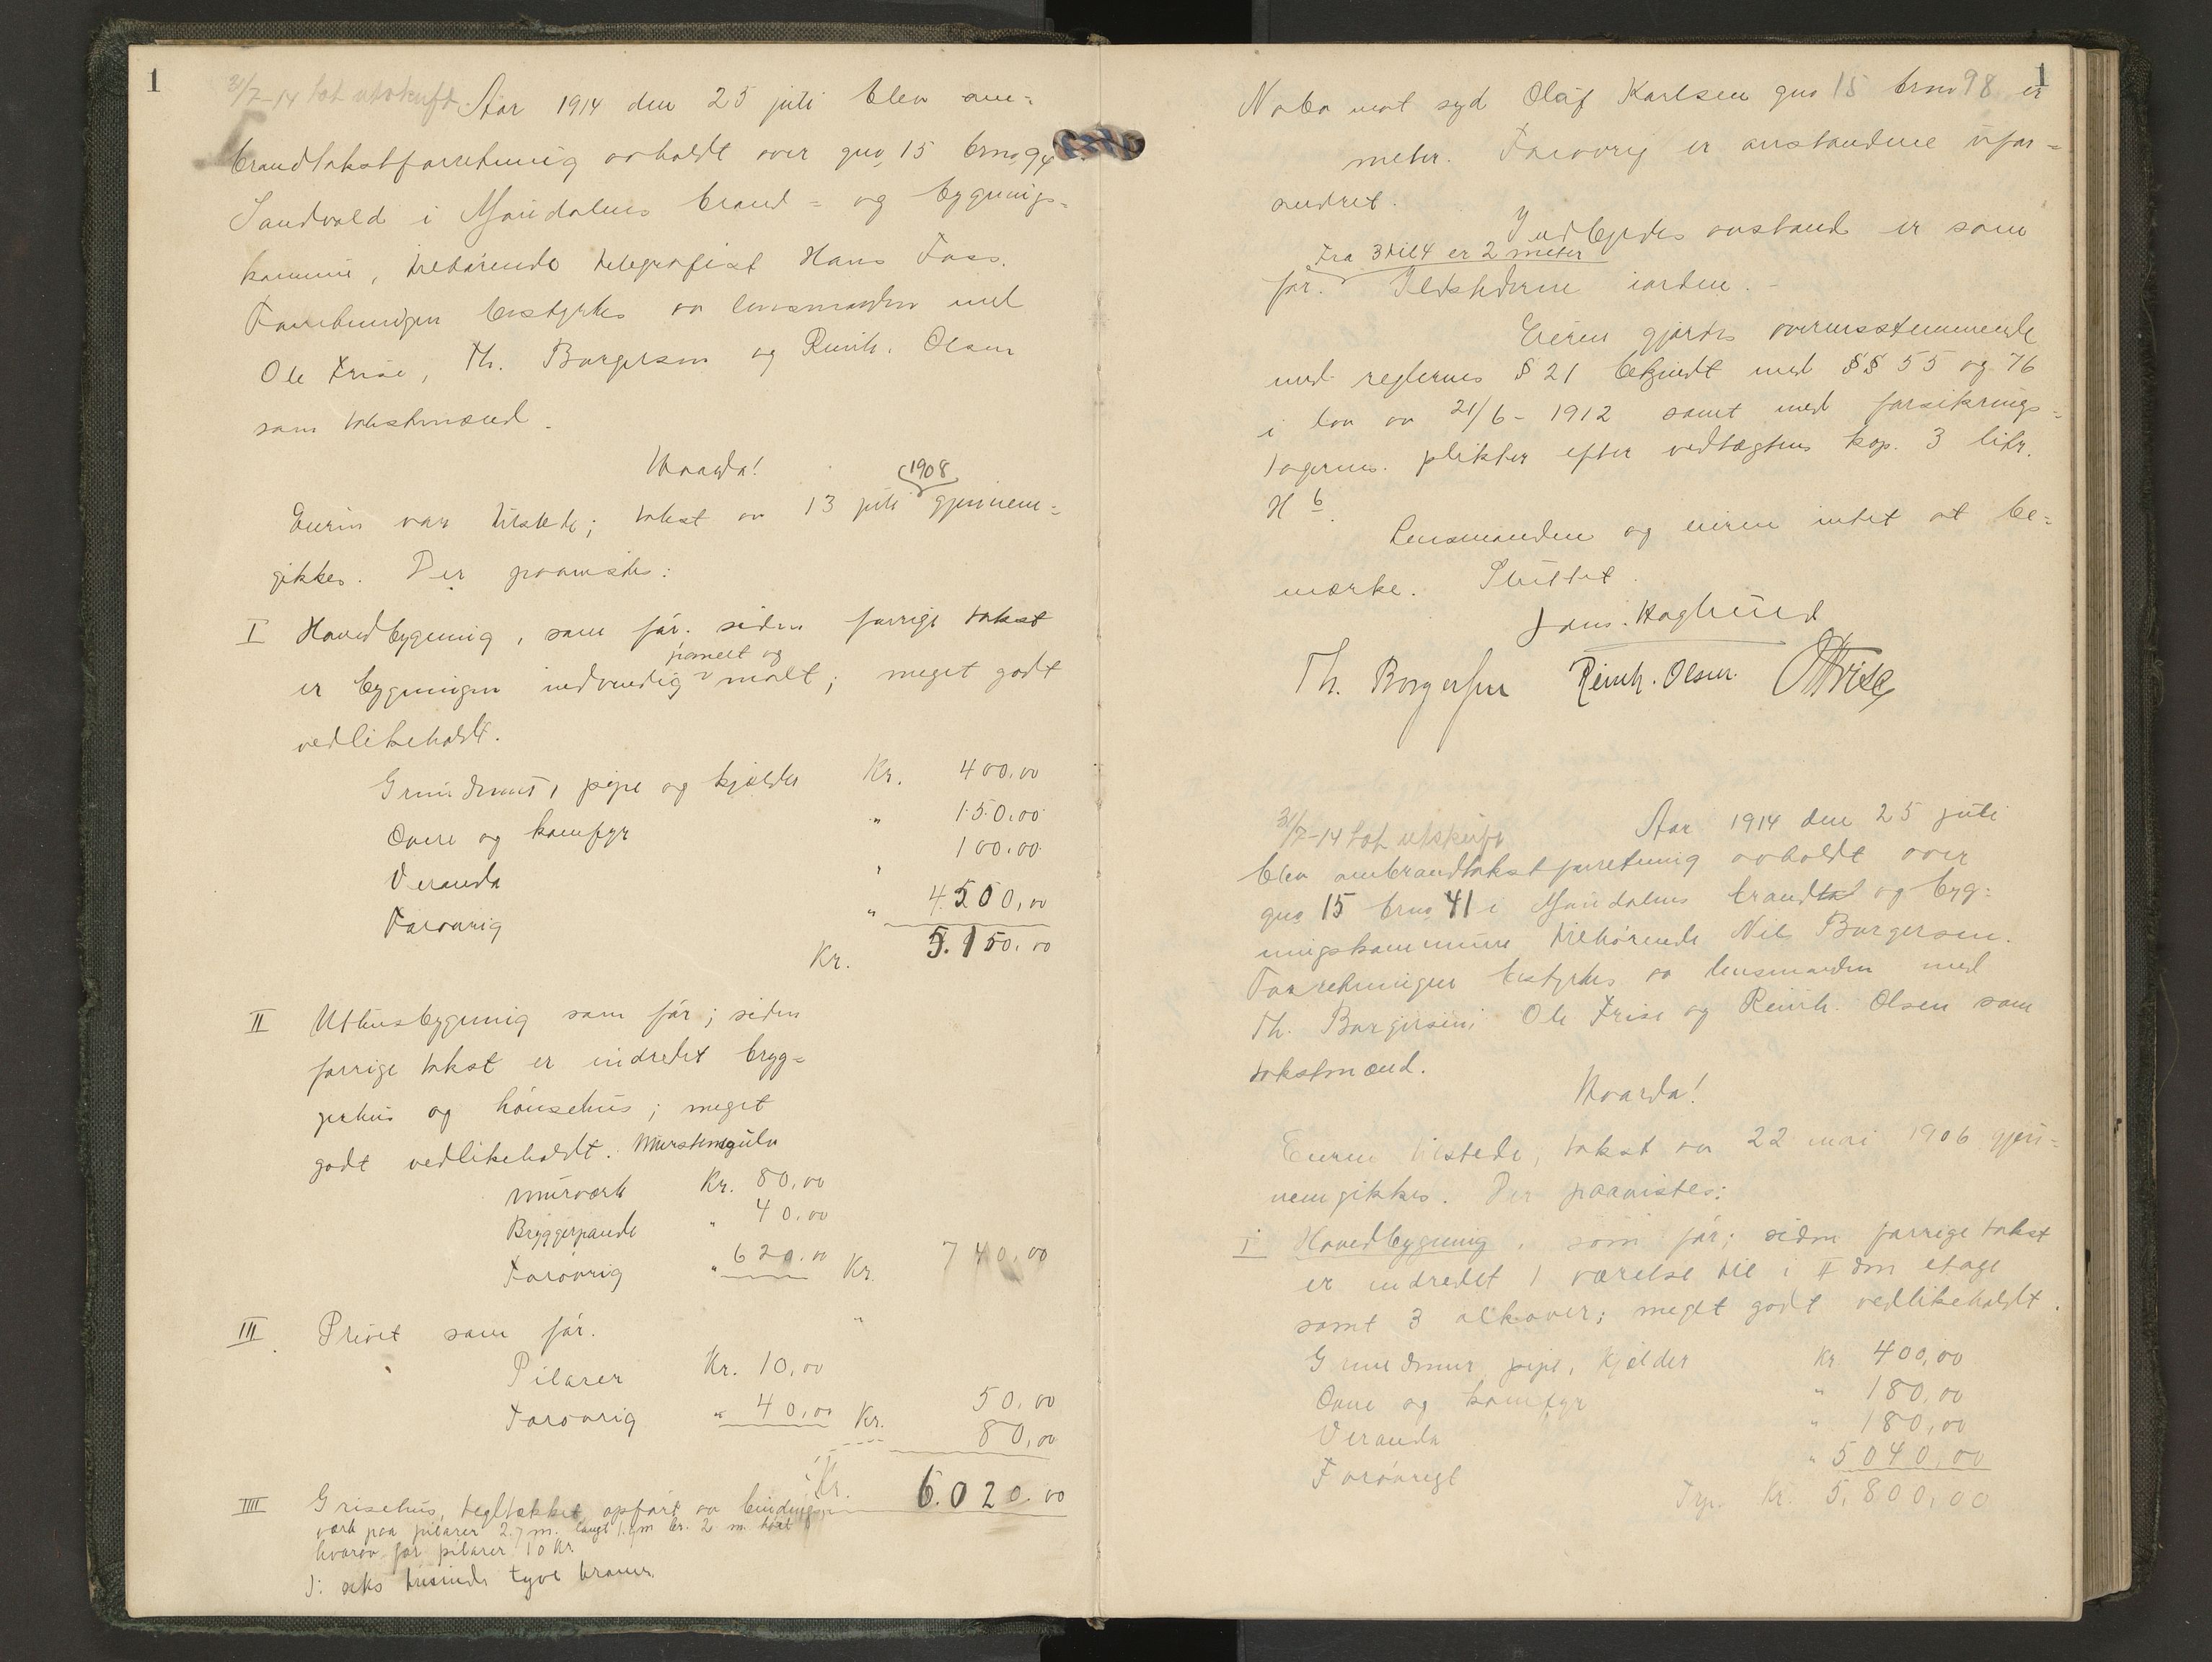 1
31/7-14 tat utskrift. Aar 1914 den 25 juli blev om=
brandtakstforretning avholdt over gno 15 brno 94
Sandvold i Mosidalens brand= og bygnings=
kommune, tilhørende telegrafist Hans Foss.
Forretningen bestyrtes av lensmanden med
Ole Frise, Th. Borgersen og Reinh. Olsen
som takstmænd.
Hvorda!
1908
Eieren var tilstede; takst av 13 juli gjennem=
gikkes. Der paavistes:
I Hovedbygning, som før. siden forrige takst
panelt og
er bygningen indvendig malt; meget godt
vedlikeholdt.
Grundmur, pipe og kjælder Kr. 400,00
Ovne og komfyr " 150,00
Veranda " 100,00
Forøvrig " 4.500,00
Kr. 5.150,00
II Uthusbygning som før; siden
forrige takst er indredet bryg=
gerhus og hønsehus; meget
godt vedlikeholdt. Murstensgulv
Murværk Kr. 80,00
Bryggerpande " 40,00
Forøvrig " 620,00 Kr. 740,00
III Privet som før. "
Pilarer Kr. 10,00
Forøvrig " 40,00 Kr. 50,00
80,00
Kr. 6.020,00
IIII Grisehus, tegltækket, opført av bindings=
verk paa pilarer 2.7 m. langt br. 2 m. høit
hvorav for pilarer 10 Kr.
D: seks tusinde tyve kroner.
1
Nabo mot syd Olaf Karlsen gno 15 brno 98 er
meter. Forøvrig er avstandene ufor=
andret.
Indbyrdes avstand er som
Fra 3 til 4 er 2 meter
før. Ildstederne iorden. -
Eieren gjordes overensstemmende
med reglernes § 21 bekjendt med §§ 55 og 76
i lov av 21/6 - 1912 samt med forsikrings=
tagernes plikter efter vedtægtens kap. 3 litr.
H 6.
Lensmanden og eieren intet at be=
merke. Sluttet.
Jons. Haglund
Th. Borgersen Reinh. Olsen. O Frise
31/7-14 tat utskrift Aar 1914 den 25 juli
blev ombrandtakstforretning avholdt over
gno 15 brno 41 i Mosidalens brand og byg=
ningskommune tilhørende Nils Borgersen.
Forretningen bestyrtes av lensmanden med
Th. Borgersen, Ole Frise og Reinh. Olsen som
takstmænd.
Hvorda!
Eieren tilstede; takst av 22 mai 1906 gjen=
nemgikkes. Der paavistes:
I Hovedbygning, som før; siden forrige takst
er indredet 1 værelse til i II den etage
samt 3 alkover; meget godt vedlikeholdt.
Grundmur, pipe, kjælder Kr 400,00
Ovne og komfyr " 180,00
Veranda " 180,00
Forøvrigt " 5.040,00
Trp. Kr. 5.800,00